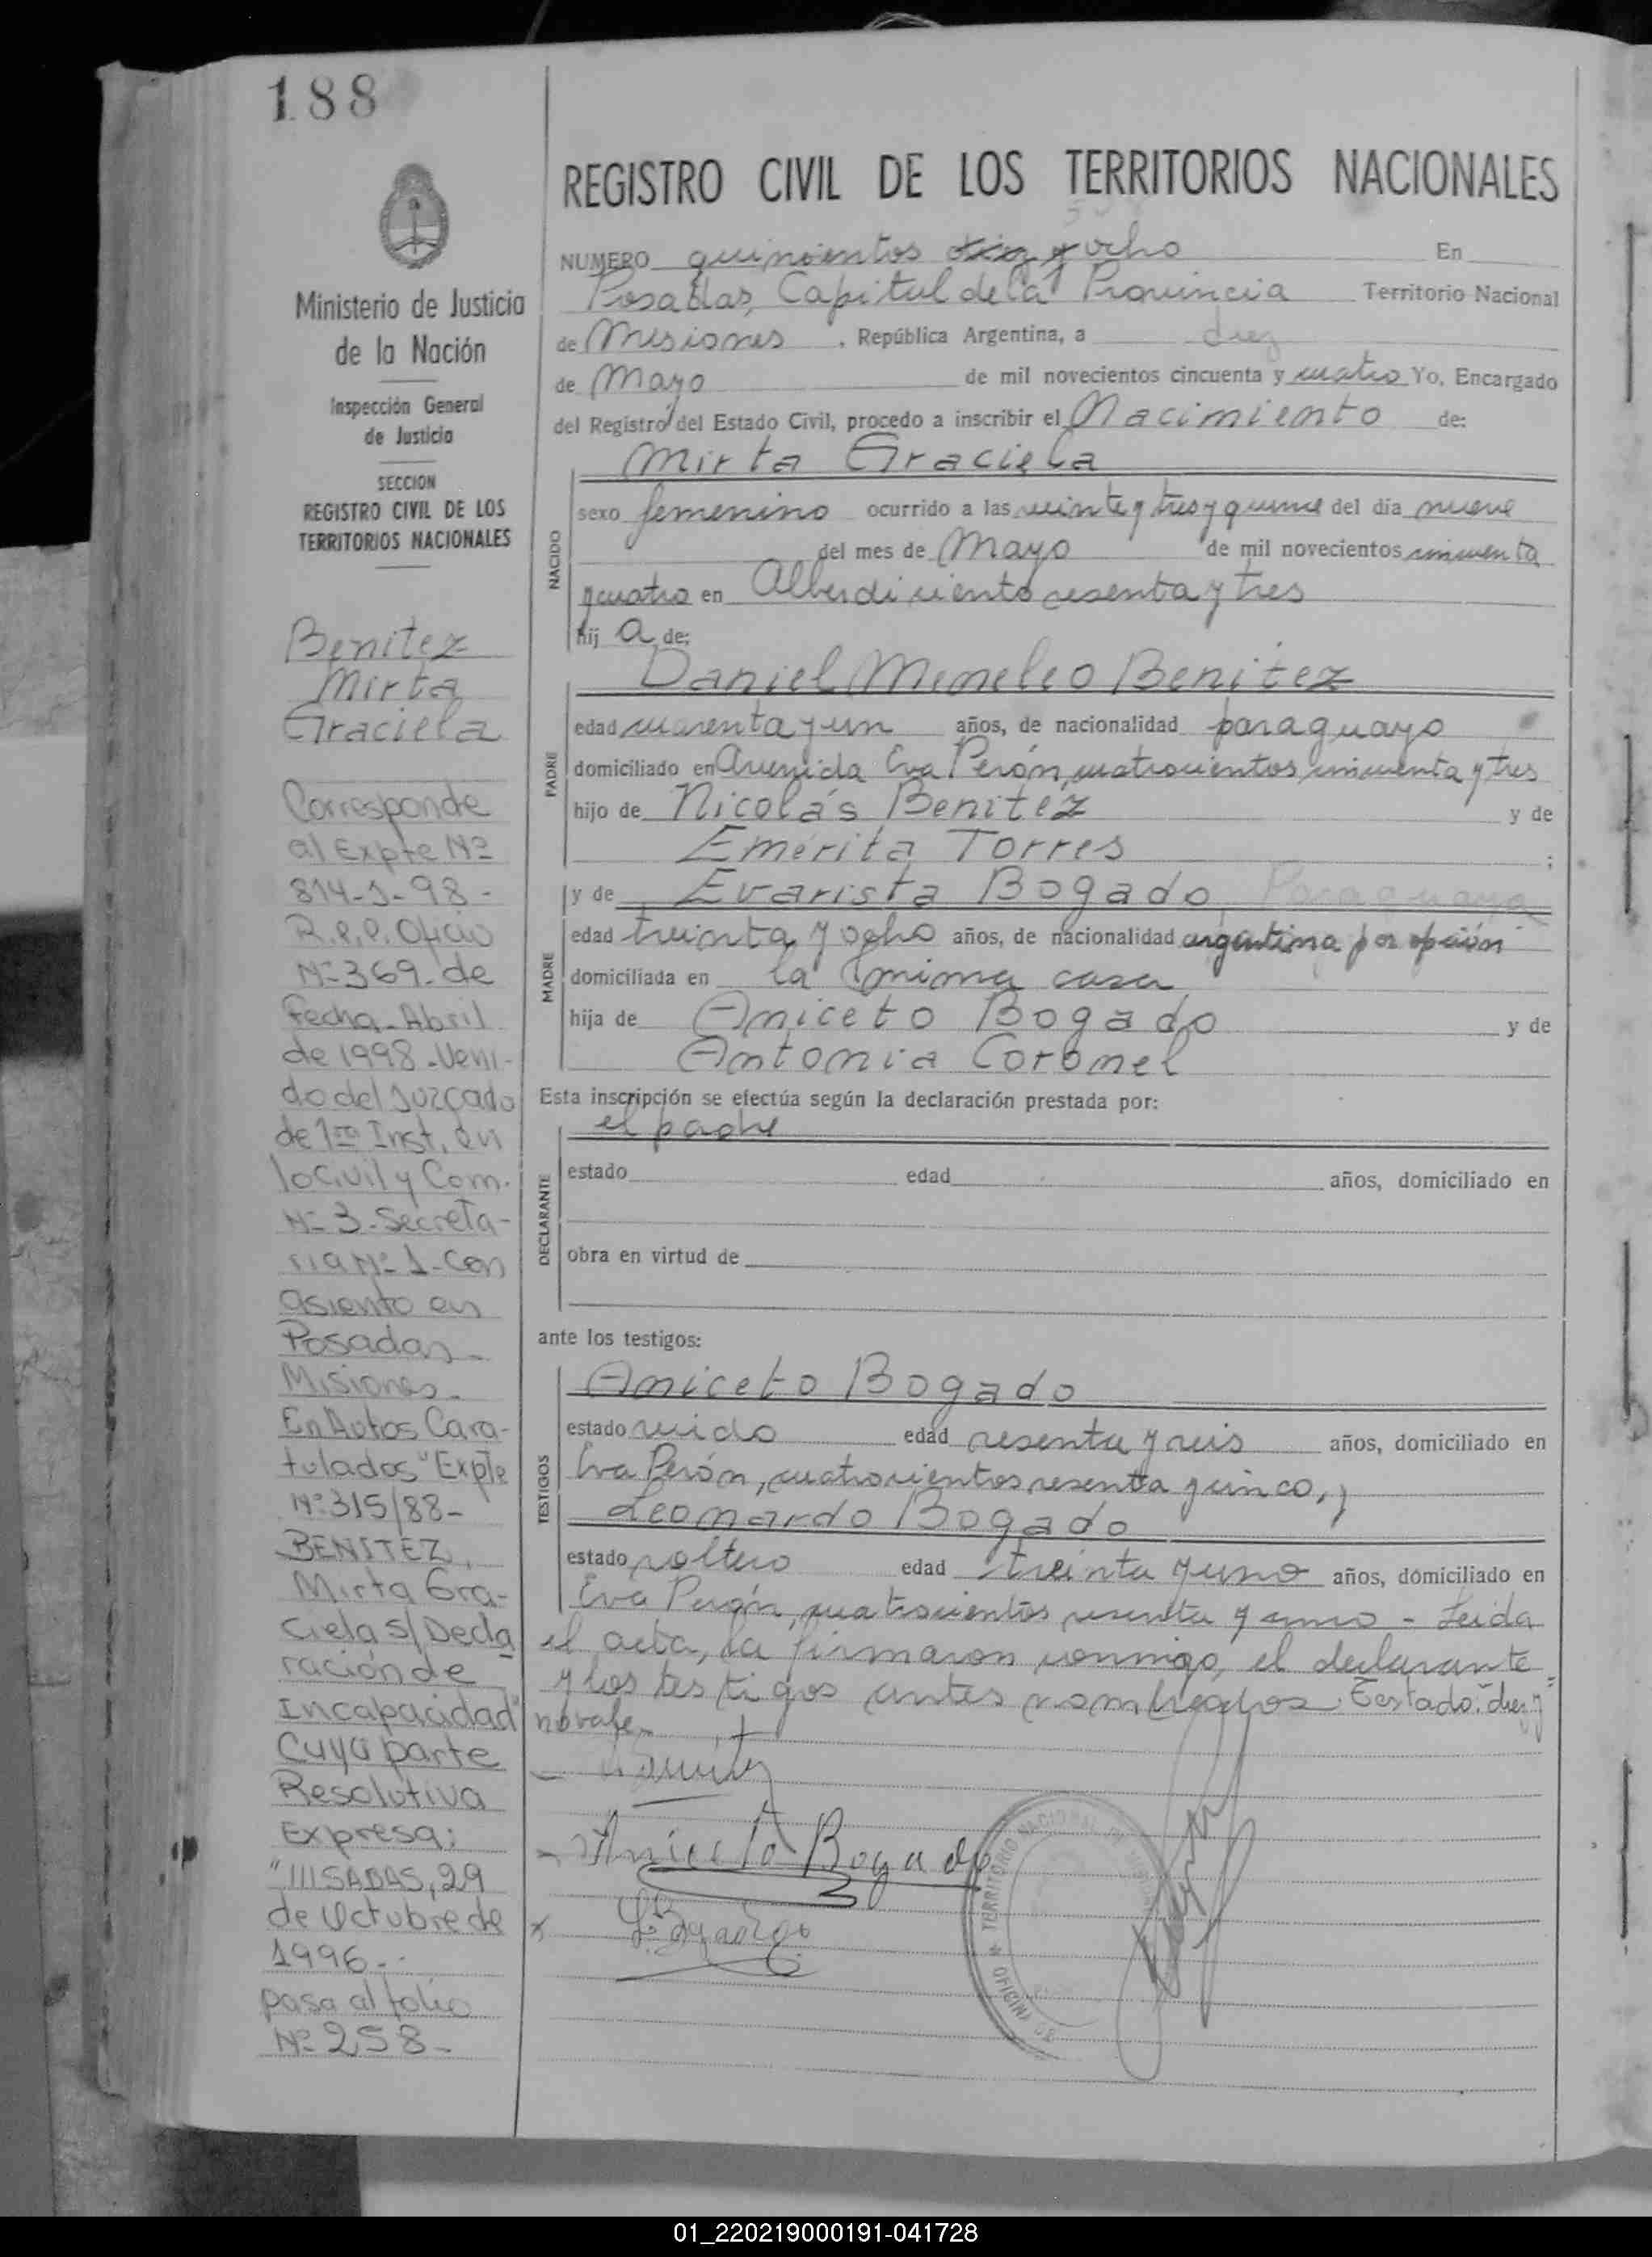 188
Ministerio de Justicia
de la Nación
Inspección General
de Justicia
SECCION
REGISTRO CIVIL DE LOS
TERRITORIOS NACIONALES
Benitez
Mirta
Graciela
Corresponde
al Expte Nº
814-J-98-
R.P.P. Oficio
Nº 369- de
fecha- Abril
de 1998- Veni-
do del Juzgado
de 1ra Inst. en
lo Civil y Com.
Nº 3- Secreta-
ria Nº 1- Con
asiento en
Posadas-
Misiones-
En Autos Cara-
tulados "Expte
Nº 315/88-
BENITEZ,
Mirta Gra-
ciela S/ Decla
ración de
Incapacidad"
Cuya parte
Resolutiva
Expresa:
"///SADAS, 29
de Octubre de
1996.-
pasa al folio
Nº 258-
REGISTRO CIVIL DE LOS TERRITORIOS NACIONALES
NUMERO quinientos diez y ocho En
Posadas, Capital de la Provincia Territorio Nacional
de Misiones , República Argentina, a diez
de Mayo de mil novecientos cincuenta y cuatro Yo, Encargado
del Registro del Estado Civil, procedo a inscribir el Nacimiento de:
Mirta Graciela
NACIDO
sexo femenino ocurrido a las veinte y tres y quince del día nueve
del mes de Mayo de mil novecientos cincuenta
y cuatro en Alberdi ciento sesenta y tres
hij a de:
Daniel Meneleo Benitez
PADRE
edad cuarenta y un años, de nacionalidad paraguayo
domiciliado en Avenida Eva Perón, cuatrocientos cincuenta y tres
hijo de Nicolás Benitez y de
Emérita Torres ;
y de Evarista Bogado, Paraguaya
MADRE
edad treinta y ocho años, de nacionalidad argentina por opción
domiciliada en la mima casa
hija de Aniceto Bogado y de
Antonia Coronel
Esta inscripción se efectúa según la declaración prestada por:
el padre
DECLARANTE
estado edad años, domiciliado en
obra en virtud de
ante los testigos:
Aniceto Bogado
TESTIGOS
estado viudo edad sesenta y seis años, domiciliado en
Eva Perón, cuatrocientos sesenta y cinco, y
Leonardo Bogado
estado soltero edad treinta y uno años, domiciliado en
Eva Perón, cuatrocientos sesenta y cinco - Leida
el acta, la firmaron conmigo, el declarante
y los testigos antes nombrados. Testado: "diez y"
no vale.
Aniceto Bogado
L. Bogado
TERRITORIO NACIONAL DE MISIONES
OFICINA
01_220219000191-041728